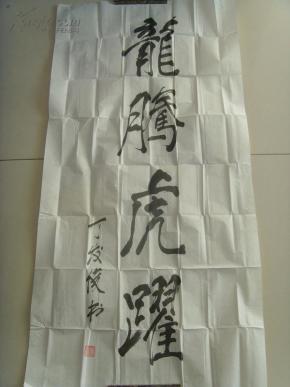 龍騰虎躍
丁发俊书